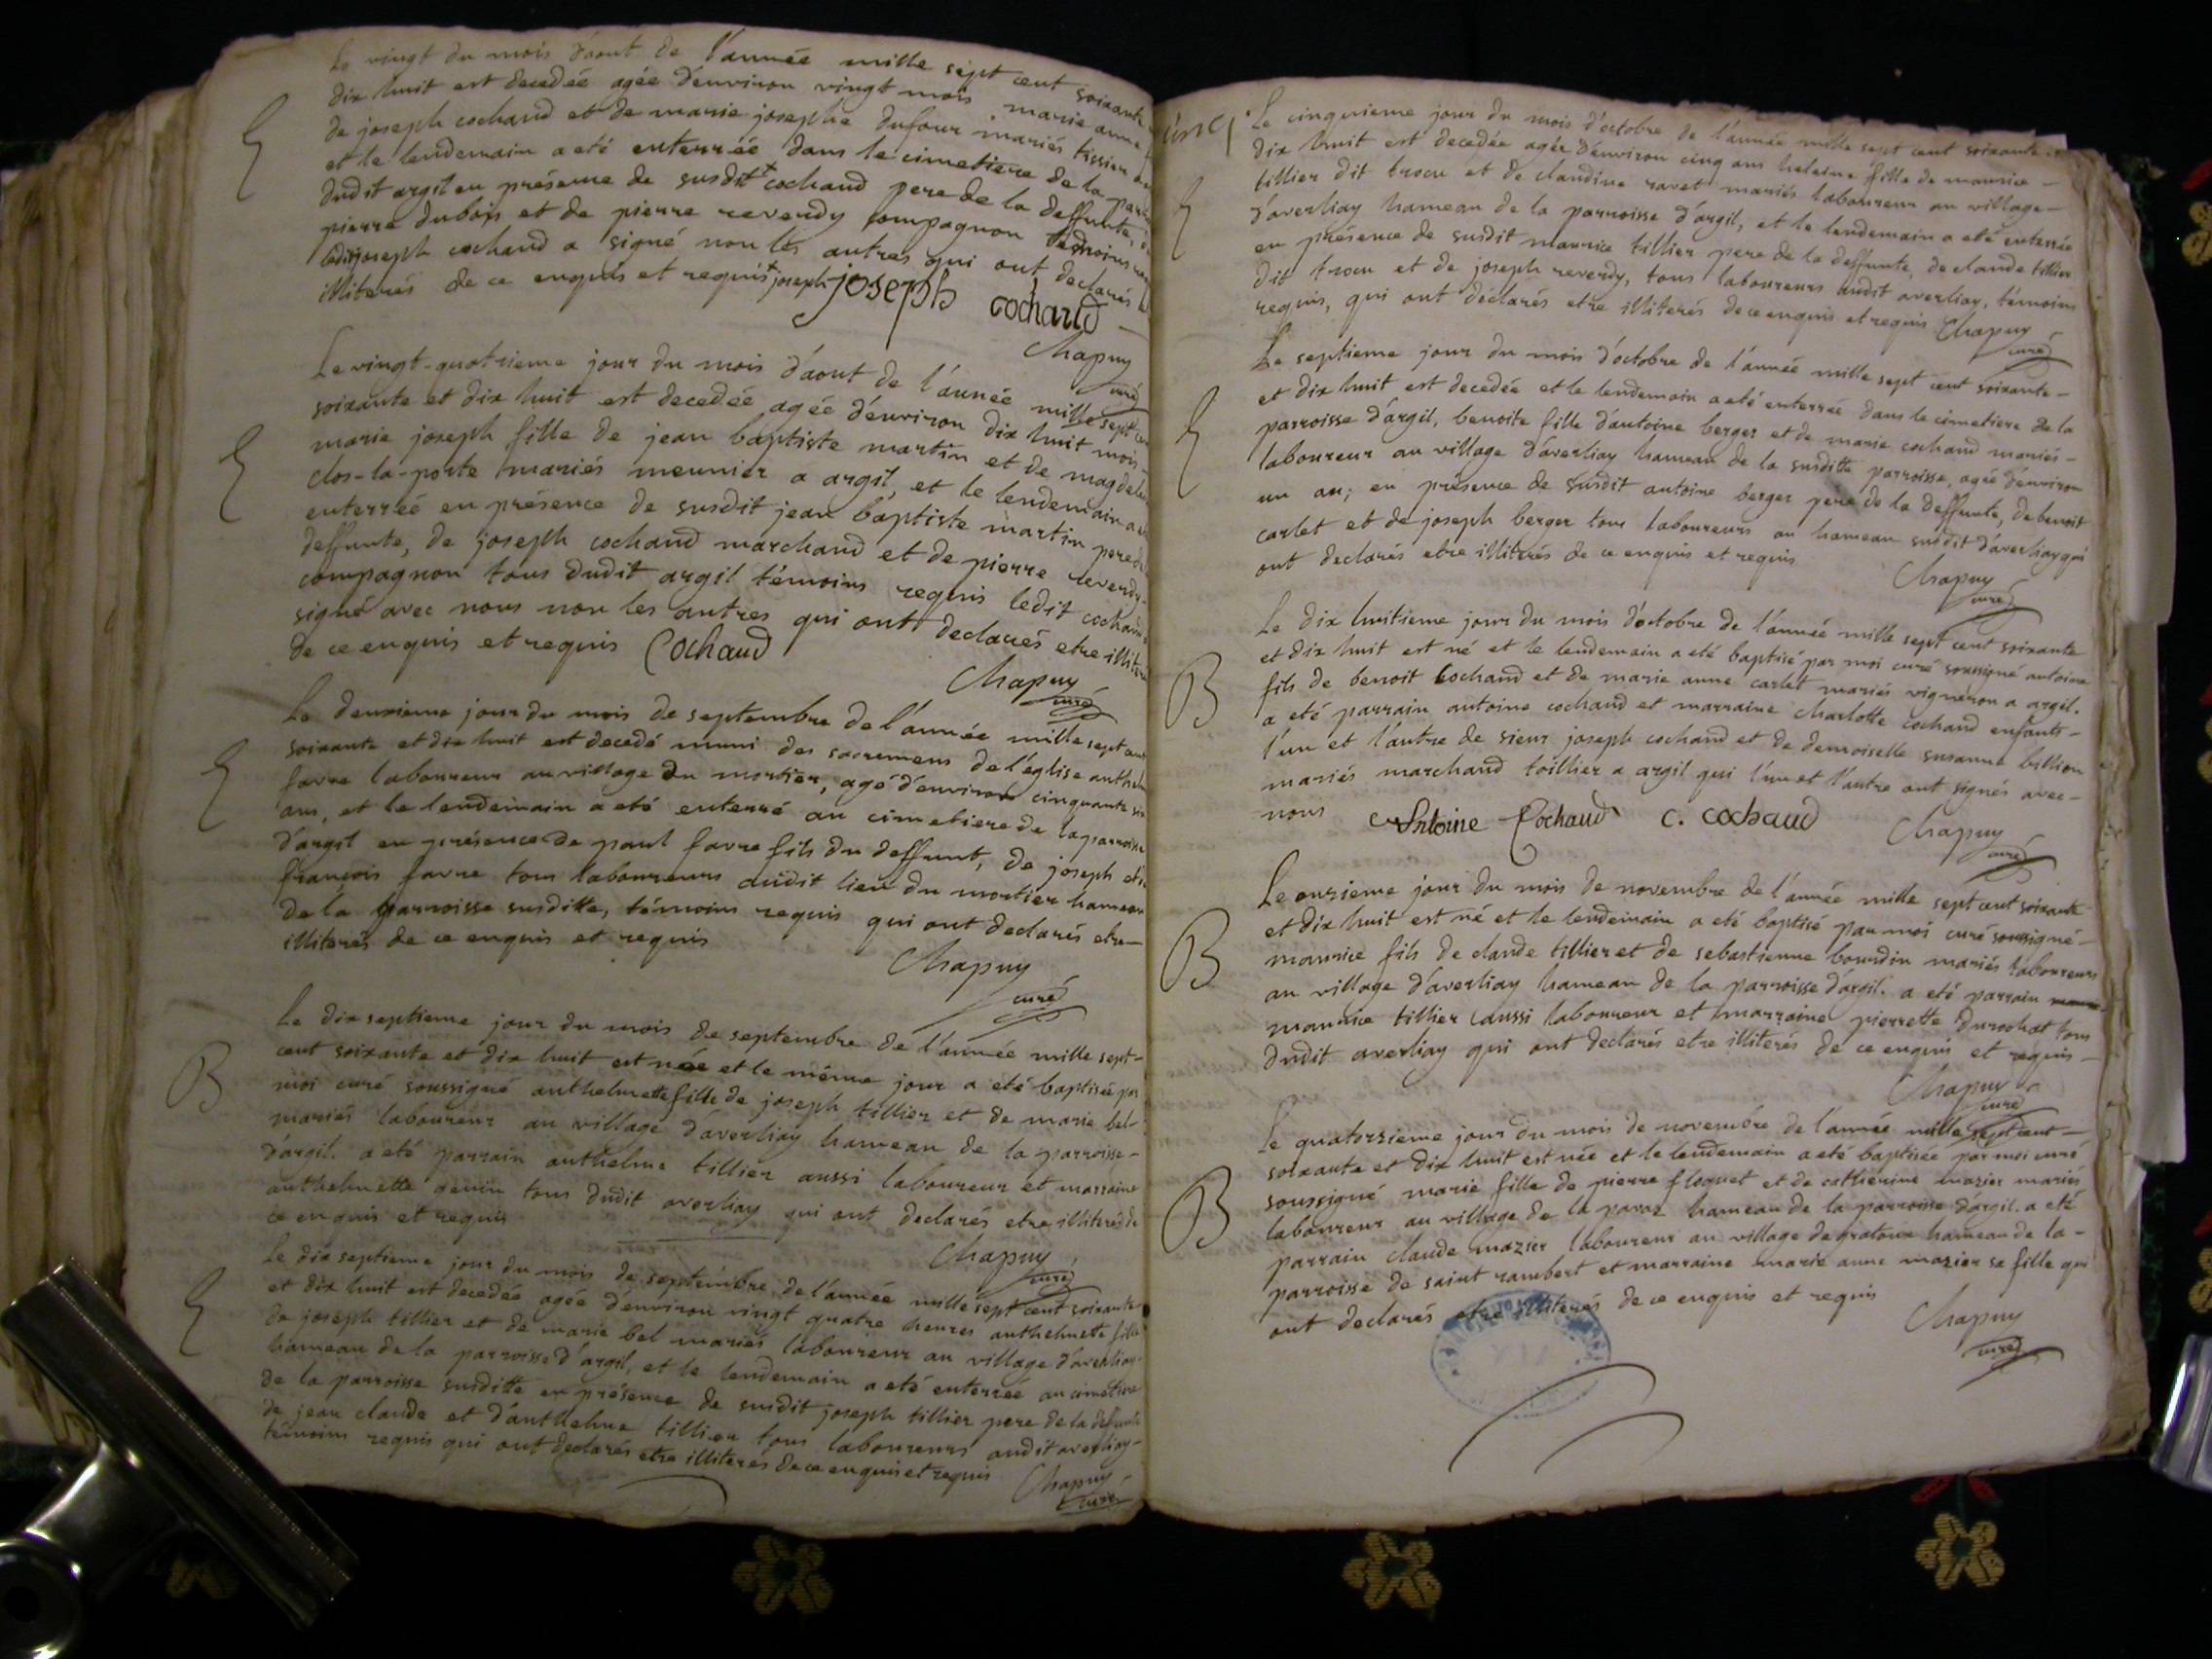 Le vingt du mois d'aout de l'année mille sept cent soixante
dix huit est decedée agée d'environ vingt mois marie anne
de joseph cochand et de marie josephe dufour mariés tissier
et le lendemain a eté enterrée dans le cimetiere de la
dudit argil en présence de susdit + cochand pere de la deffunte,
pierre dubois et de pierre reverdy compagnon temoins
ledit joseph cochand a signé non les autres qui ont declarés
illiterés de ce enquis et requis + joseph joseph cochand
Chapuy
curé
Le vingt-quatrieme jour du mois d'aout de l'année mille sept
soixante et dix huit est decedée agée d'environ dix huit mois
marie joseph fille de jean baptiste martin et de
clos-la-porte mariés meunier a argil, et le lendemain a
enterrée en présence de susdit jean baptiste martin pere de
deffunte, de joseph cochand marchand et de pierre reverdy
compagnon tous dudit argil témoins requis ledit cochand
signé avec nous non les autres qui ont declarés etre
de ce enquis et requis Cochand
Chapuy
curé
Le deuxieme jour du mois de septembre de l'année mille sept cent
soixante et dix huit est decedé muni des sacremens de l'église
favre laboureur au village du mortier, agé d'environ cinquante
ans, et le lendemain a eté enterré au cimetiere de la parroisse
d'argil en présence de paul favre fils du deffunt, de joseph
françois favre tous laboureurs audit lieu du mortier hameau
de la parroisse susditte, témoins requis qui ont declarés etre
illiterés de ce enquis et requis
Chapuy
curé
B Le dix septieme jour du mois de septembre de l'année mille sept-
cent soixante et dix huit est née et le même jour a eté baptisée par
moi curé soussigné anthelmette fille de joseph tillier et de marie bel-
mariés laboureur au village d'averliay hameau de la parroisse-
d'argil. a eté parrain anthelme tillier aussi laboureur et marraine
anthelmette genin tous dudit averliay qui ont declarés etre illiterés de
ce enquis et requis
Chapuy
curé
Le dix septieme jour du mois de septembre de l'année mille sept cent soixante
et dix huit est decedée agée d'environ vingt quatre heures anthelmette fille
de joseph tillier et de marie bel mariés laboureur au village d'averliay-
hameau de la parroisse d'argil, et le lendemain a eté enterrée au cimetiere
de la parroisse susditte en présence de susdit joseph tillier pere de la deffunte
de jean claude et d'anthelme tillier tous laboureurs audit averliay-
témoins requis qui ont declarés etre illiterés de ce enquis et requis
Chapuy
curé
Le cinquieme jour du mois d'octobre de l'année mille sept cent soixante et
dix huit est decedée agée d'environ cinq ans fille de maurice -
tillier dit trocu et de claudine ravet mariés laboureur au village-
d'averliay hameau de la parroisse d'argil, et le lendemain a eté enterrée
en présence de susdit maurice tillier pere de la deffunte, de claude tillier
dit trocu et de joseph reverdy, tous laboureurs audit averliay, témoins
requis, qui ont déclarés etre illiterés de ce enquis et requis Chapuy
curé
Le septieme jour du mois d'octobre de l'année mille sept cent soixante-
et dix huit est decedée et le lendemain a eté enterrée dans le cimetiere de la
parroisse d'argil, benoite fille d'antoine berger et de marie cochand mariés-
laboureur au village d'averliay hameau de la susditte parroisse, agée d'environ
un an; en présence de susdit antoine berger pere de la deffunte, de benoit
carlet et de joseph berger tous laboureurs au hameau susdit d'averliay qui
ont declarés etre illiterés de ce enquis et requis
Chapuy
curé
Le dix huitieme jour du mois d'octobre de l'année mille sept cent soixante
et dix huit est né et le lendemain a eté baptisé par moi curé soussigné antoine
B fils de benoit Cochand et de marie anne carlet mariés vigneron a argil.
a eté parrain antoine cochand et marraine charlotte cochand enfants-
l'un et l'autre de sieur joseph cochand et de demoiselle susanne billion
mariés marchand toillier a argil qui l'un et l'autre ont signés avec-
nous Antoine Cochaud C. cochaud Chapuy
curé
Le onzieme jour du mois de novembre de l'année mille sept cent soixante
et dix huit est né et le lendemain a eté baptisé par moi curé soussigné-
B maurice fils de claude tillier et de sebastienne bourdin mariés laboureurs
au village d'averliay hameau de la parroisse d'argil. a eté parrain
maurice tillier aussi laboureur et marraine pierrette durochat tous
dudit averliay qui ont declarés etre illiterés de ce enquis et requis-
Chapuy
curé
Le quatorzieme jour du mois de novembre de l'année mille sept cent-
soixante et dix huit est née et le lendemain a eté baptisée par moi curé
B soussigné marie fille de pierre floquet et de catherine mazier mariés
laboureur au village de la hameau de la parroisse d'argil. a eté
parrain claude mazier laboureur au village de hameau de la-
parroisse de saint rambert et marraine marie anne mazier sa fille qui
ont declarés etre illiterés de ce enquis et requis
Chapuy
curé